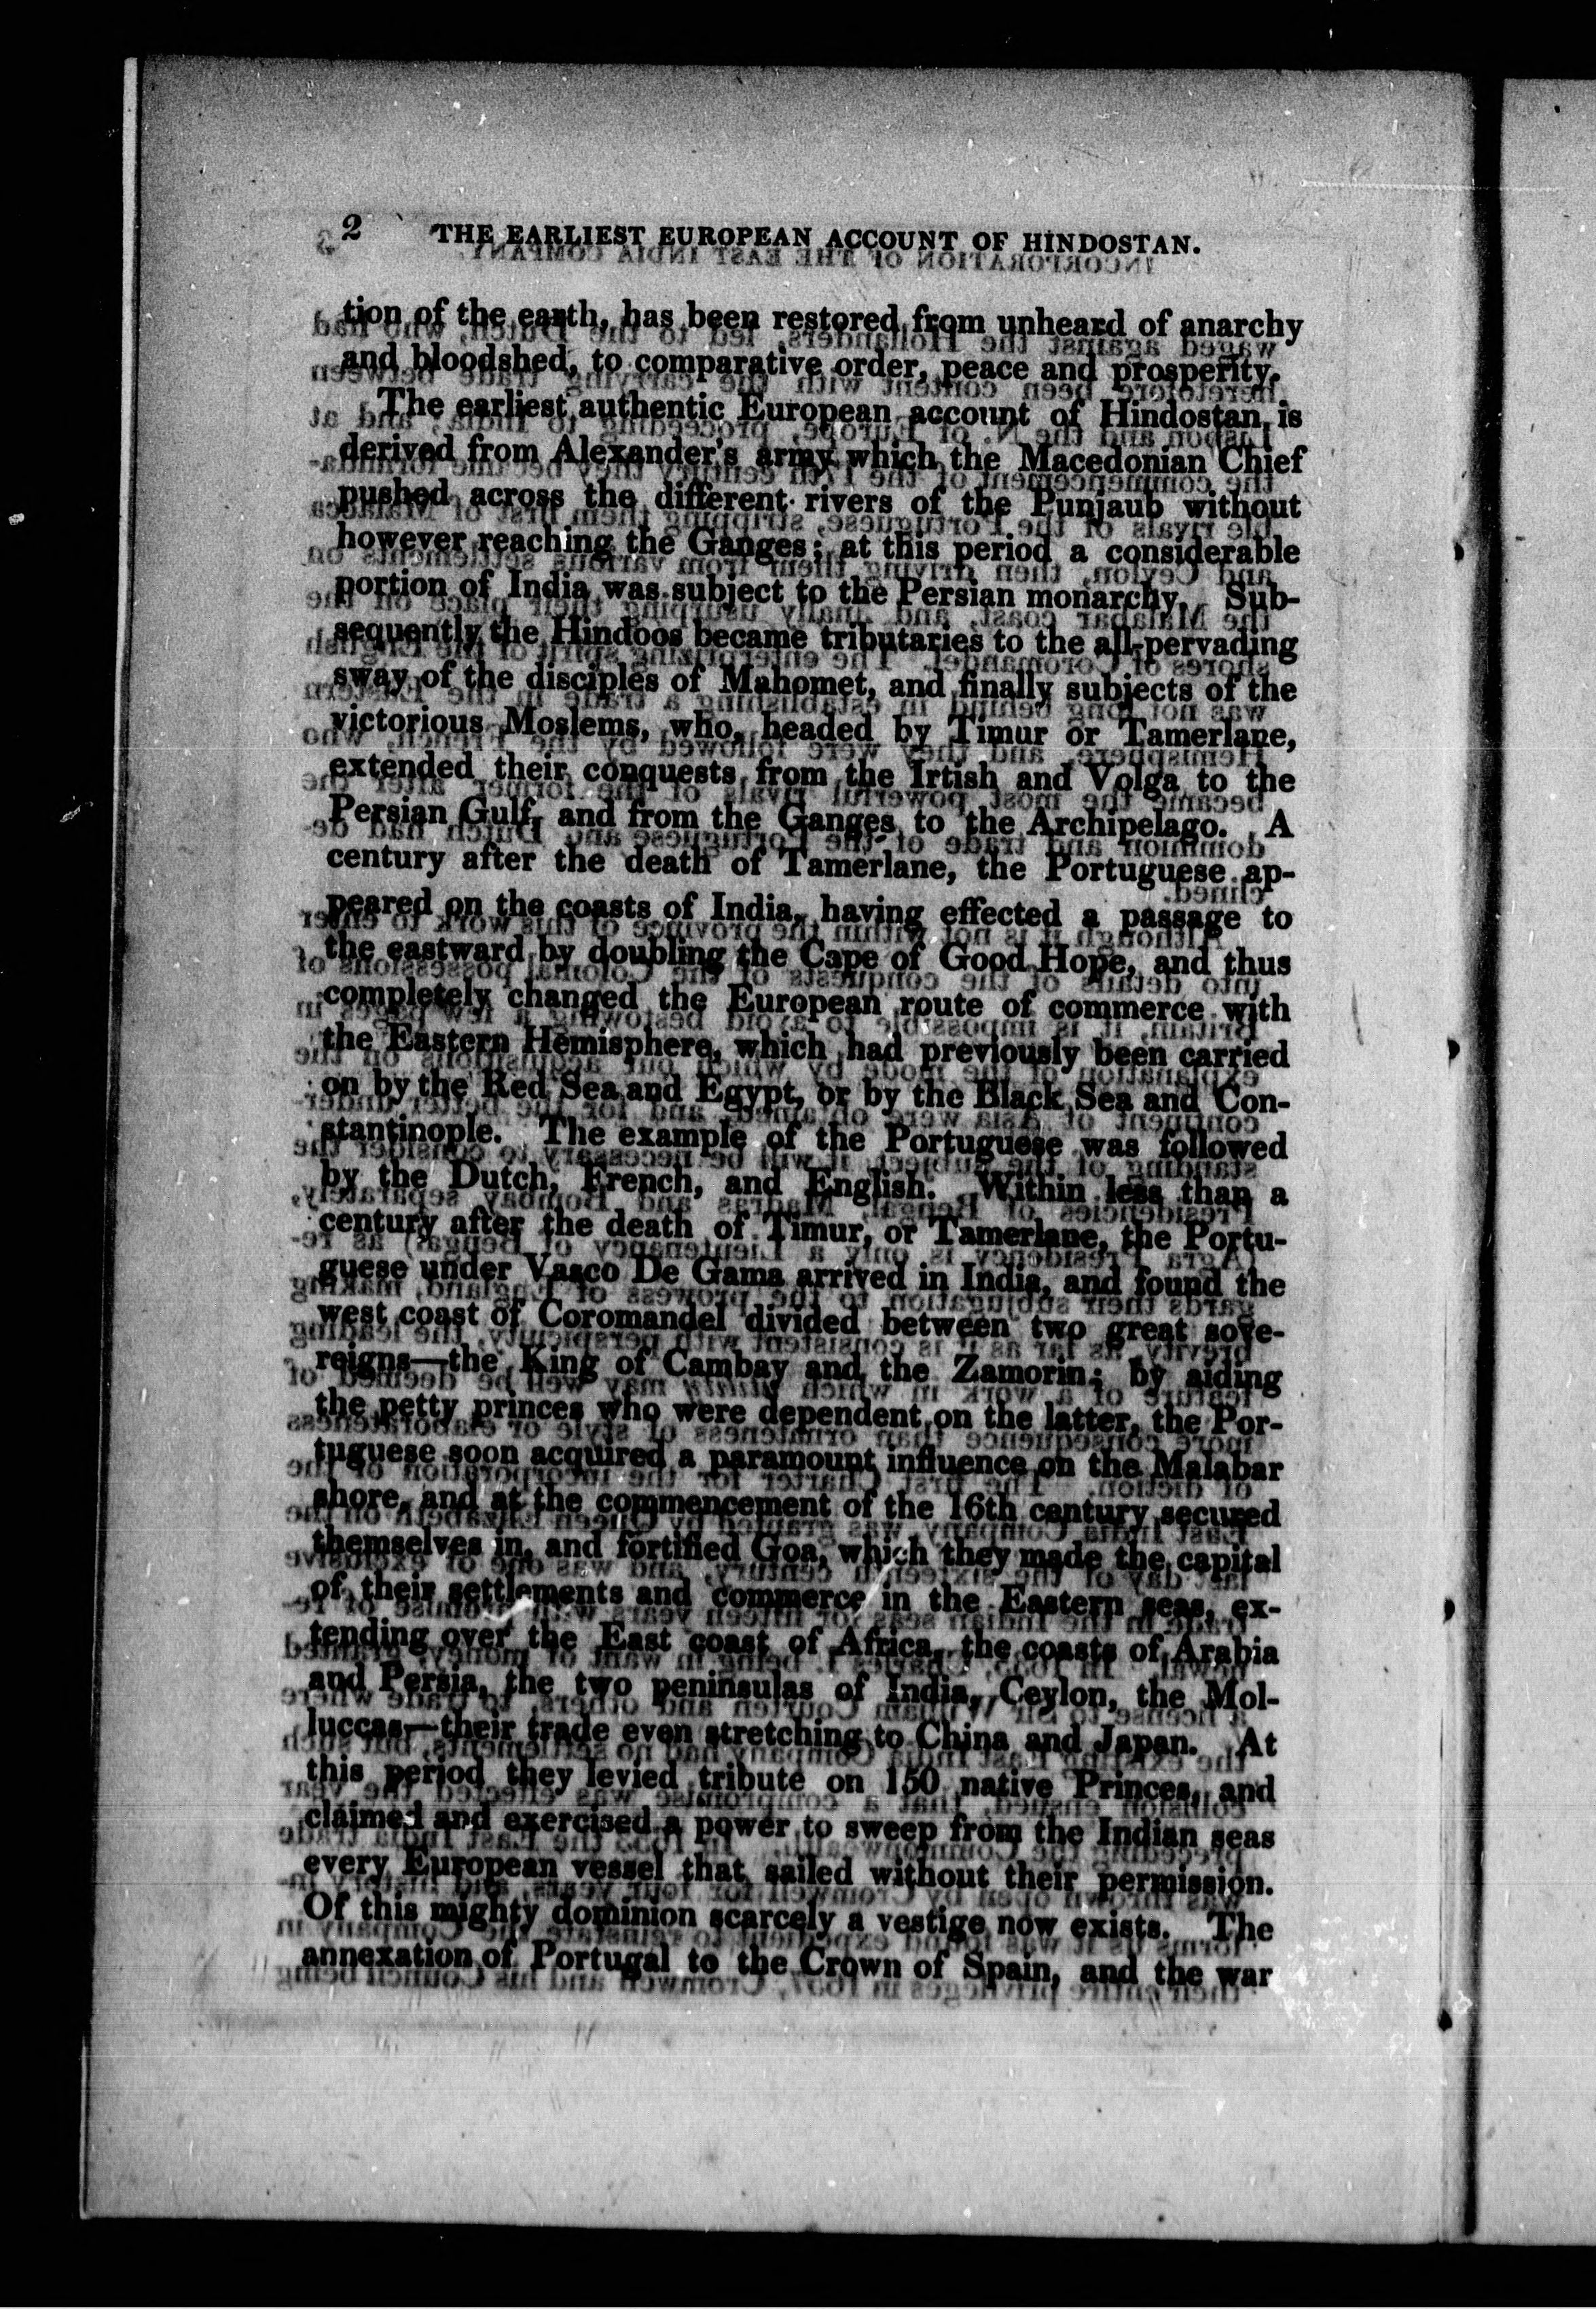 2 THE EARLIEST EUROPEAN ACCOUNT OF HINDOSTAN.
tion of the earth, has been restored from unheard of anarchy
and bloodshed, to comparative order, peace and prosperity.
The earliest authentic European account of Hindostan is
derived from Alexander's army which the Macedonian Chief
pushed across the different rivers of the Punjaub without
however reaching the Ganges; at this period a considerable
portion of India was subject to the Persian monarchy. Sub-
sequently the Hindoos became tributaries to the all-pervading
sway of the disciples of Mahomet, and finally subjects of the
victorious Moslems, who, headed by Timur or Tamerlane,
extended their conquests from the Irtish and Volga to the
Persian Gulf, and from the Ganges to the Archipelago. A
century after the death of Tamerlane, the Portuguese ap-
peared on the coasts of India, having effected a passage to
the eastward by doubling the Cape of Good Hope, and thus
completely changed the European route of commerce with
the Eastern Hemisphere, which had previously been carried
on by the Red Sea and Egypt, or by the Black Sea and Con-
stantinople. The example of the Portuguese was followed
by the Dutch, French, and English. Within less than a
century after the death of Timur, or Tamerlane, the Portu-
guese under Vasco De Gama arrived in India, and found the
west coast of Coromandel divided between two great sove-
reigns—the King of Cambay and the Zamorin; by aiding
the petty princes who were dependent on the latter, the Por-
tuguese soon acquired a paramount influence on the Malabar
shore, and at the commencement of the 16th century secured
themselves in, and fortified Goa, which they made the capital
of their settlements and commerce in the Eastern seas, ex-
tending over the East coast of Africa, the coasts of Arabia
and Persia, the two peninsulas of India, Ceylon, the Mol-
luccas—their trade even stretching to China and Japan. At
this period they levied tribute on 150 native Princes, and
claimed and exercised a power to sweep from the Indian seas
every European vessel that sailed without their permission.
Of this mighty dominion scarcely a vestige now exists. The
annexation of Portugal to the Crown of Spain, and the war